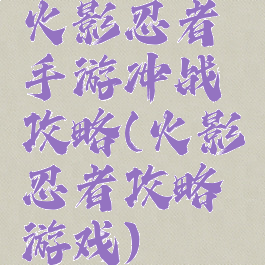 火影忍者
手游冲战
攻略(火影
忍者攻略
游戏)